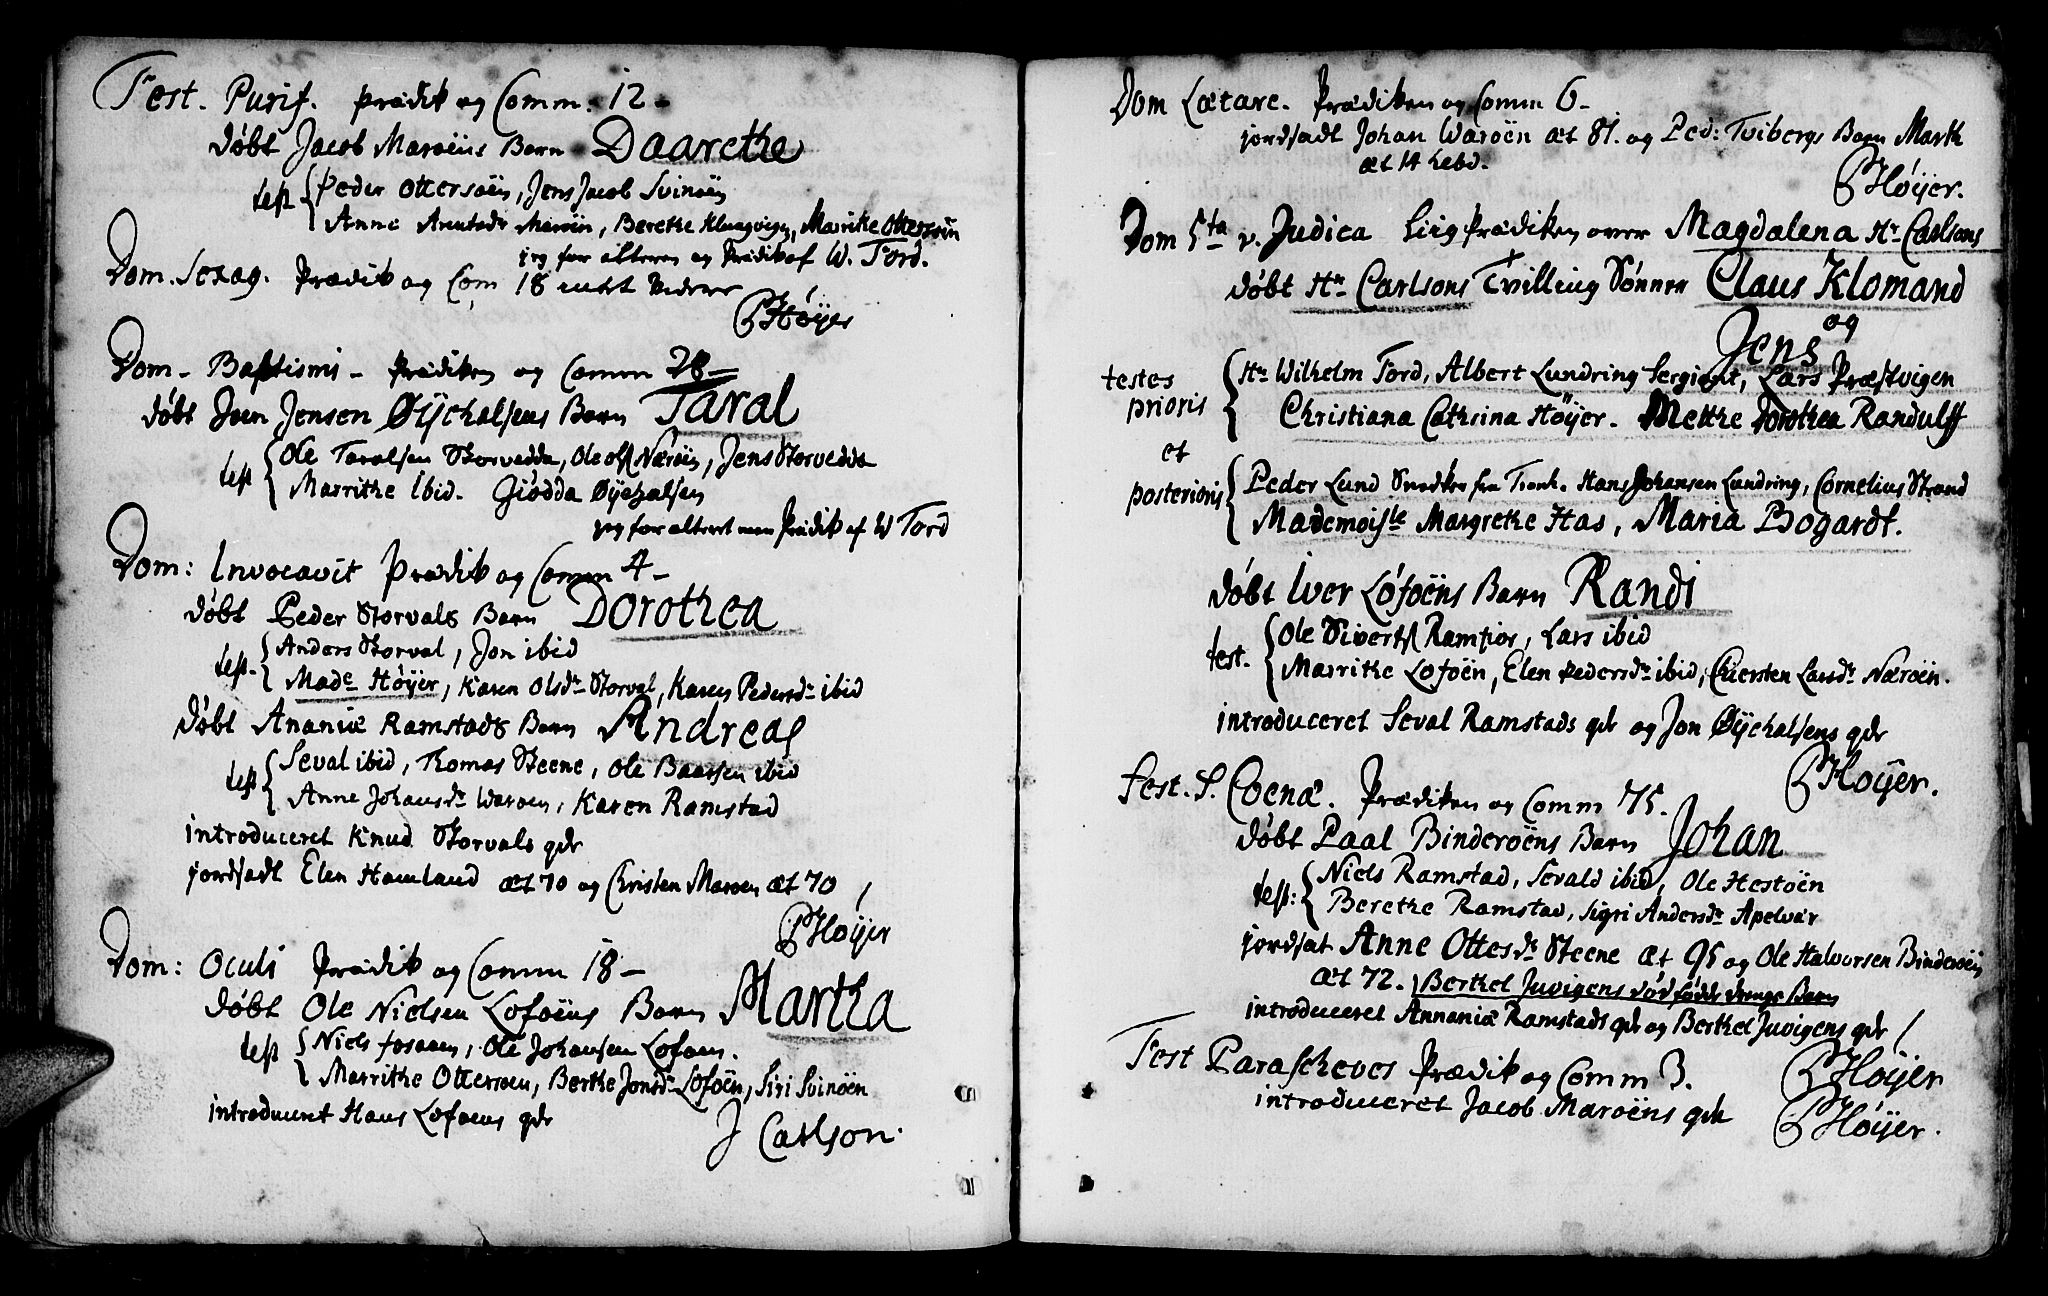 Fest. Purif. Prædik og Comm. 12 -
døbt Jacob Marøens Barn Daarethe
test Peder Ottersøen, Jens Jacob Svinøen
Anne Arntsdr Marøen, Berethe Klungvigen, Marrithe Ottersøen
jeg for alteren og Prædik af W. Tord.
Dom. Sexag. Prædik og Com 18 intet videre
PHøÿer
Dom - Baptismi - Prædiken og Comm 28 -
døbt Joen Jensen Øÿehalsens Barn Taral
test Ole Taralsen Storvedda, Ole Ols Nærøen, Jens Storvedda
Marrithe Ibid. Giødda Øÿehalsen
jeg for alteret men Prædik af W Tord
Dom: Invocavit Prædik og Comm 4 -
døbt Peder Storvals Barn Dorothea
test Anders Storval, Jon ibid
Made Høÿer, Karen Olsdr Storval, Karen Pedersdr ibid
døbt Ananiæ Ramstads Barn Andreas
test Seval ibid, Thomas Steene, Ole Baarsen ibid
Anne Johansdr Warøen, Karen Ramstad
introduceret Knud Storvals qdr
jordsadt Elen Hamland æt 70 og Christen Marøen æt 70
PHøÿer
Dom: Oculi Prædik og Comm 18 -
døbt Ole Nielsen Loføens Barn Martha
test Niels fosaaen, Ole Johansen Loføen.
Marrithe Ottersøen, Berthe Jonsdr Loføen, Siri Svinøen
introduceret Hans Loføens qdr
J Carlson.
Dom Lætare. Prædiken og Comm 6 -
jordsadt Johan Warøen æt 81. og Ped: Tvibergs Barn Marth
æt 14 hebd.
PHøÿer.
Dom 5ta v. Judica Liigprædiken over Magdalena Hr Carlsons
døbt Hr Carlsons Tvilling Sønner Claus Klomand
og
Jens
testes prioris Hr Wilhelm Tord, Albert Lundring Sergiant, Lars Præstvigen
Christiana Cathrina Høÿer. Mette Dorothea Randulff
et
posterioris Peder Lund Snedker fra Tronh. Hans Johansen Lundring, Cornelius Strand
Mademoislle Margrethe Has, Maria Bogardt.
døbt Iver Løføens Barn Randi
test. Ole Sivers Ramfior, Lars ibid
Marrithe Loføen, Elen Pedersdr ibid, Chiersten Larsdr Nærøen.
introduceret Seval Ramstads qdr og Jon Øÿehalsens qdr
PHøÿer.
Fest. S. Coenæ. Prædiken og Comm 75.
døbt Paal Binderøens Barn Johan
test: Niels Ramstad, Sevald ibid, Ole Hestøen
Berethe Ramstad, Sigri Andersdr Apelvær
jordsat Anne Ottesdr Steene æt 95 og Ole Halvorsen Binderøen
æt 72. Berthel Juvigens død fødde drenge Barn
introduceret Annaniæ Ramstads qdr og Berthel Juvigens qdr
PHøÿer
Fest Parascheves Prædik og Comm 3.
introduceret Jacob Marøens qdr
PHøÿer.